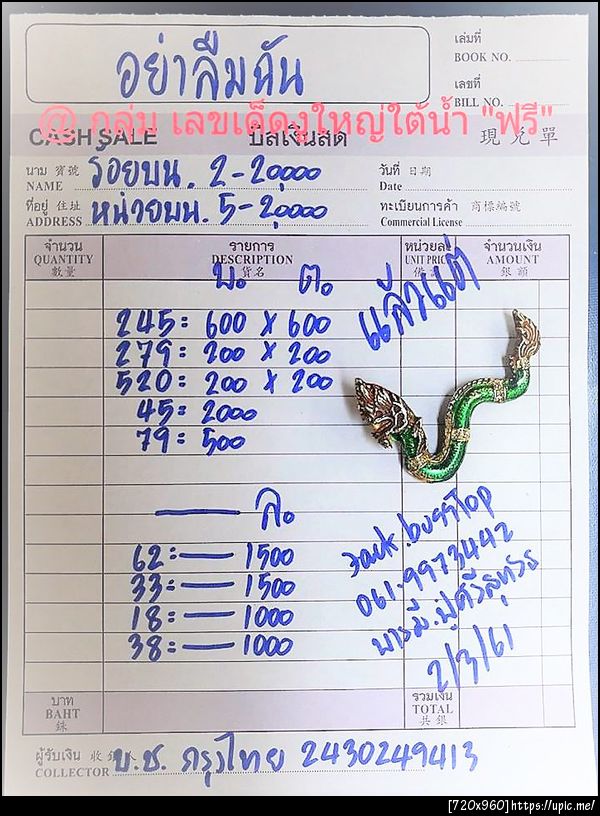 อย่าลืมฉัน
เล่มที่
BOOK NO.
เลขที่
BILL NO.
@ กลุ่ม เลขเด็ดงูใหญ่ใต้น้ำ "ฟรี"
CASH SALE บิลเงินสด 現兌單
นาม 寶號 ร้อยบน. 2-20,000 วันที่ 日期
NAME Date
ที่อยู่ 住址 หน่วยบน. 5-20,000 ทะเบียนการค้า 商標編號
ADDRESS Commercial License
จำนวน รายการ หน่วยละ จำนวนเงิน
QUANTITY DESCRIPTION UNIT PRICE AMOUNT
數量 貨名 備 銀額
บ. ต.
แล้วแต่
245= 600 x 600
279= 200 x 200
520= 200 x 200
45= 2000
79= 500
ล.
62= 1500
33= 1500
18= 1000
38= 1000
061-9973442
บารมี.ปู่ศรีสุทโธ
2/3/61
บาท รวมเงิน
BAHT TOTAL
銖 共銀
ผู้รับเงิน 收 บ.ช. กรุงไทย 2430249413
COLLECTOR
[720x960]https://upic.me/